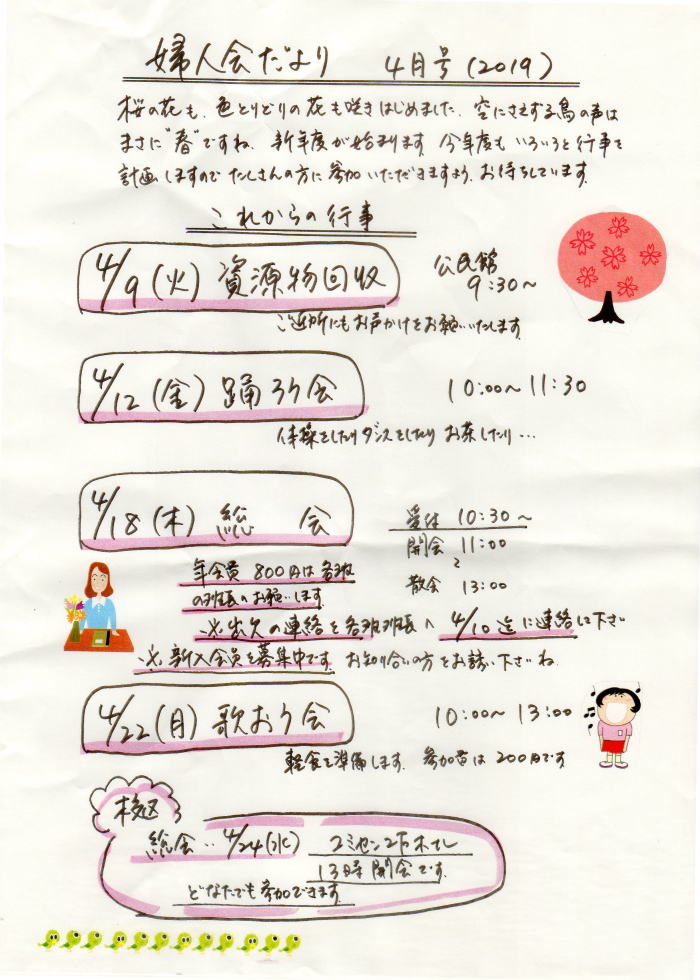 婦人会だより 4月号(2019)
桜の花も、色とりどりの花も咲きはじめました。空にさえずる鳥の声は
まさに"春"ですね。新年度が始まります。今年度もいろいろと行事を
計画しますのでたくさんの方に参加いただきますよう、お待ちしています。
これからの行事
4/9(火) 資源物回収 公民館 9:30~
ご近所にもお声かけをお願いいたします。
4/12(金) 踊ろう会 10:00~11:30
体操をしたりダンスをしたりお茶したり…
4/18(木) 総 会
受付 10:30~
開会 11:00
~
散会 13:00
年会費 800円は各班
の班長へお願いします。
※出欠の連絡を各班班長へ 4/10迄に連絡して下さい
※新入会員を募集中です。お知り合いの方をお誘い下さいね。
4/22(月) 歌おう会 10:00~13:00
軽食を準備します。参加費は200円です
校区
総会‥4/24(水) コミセン2Fホール
13時開会です。
どなたでも参加できます。